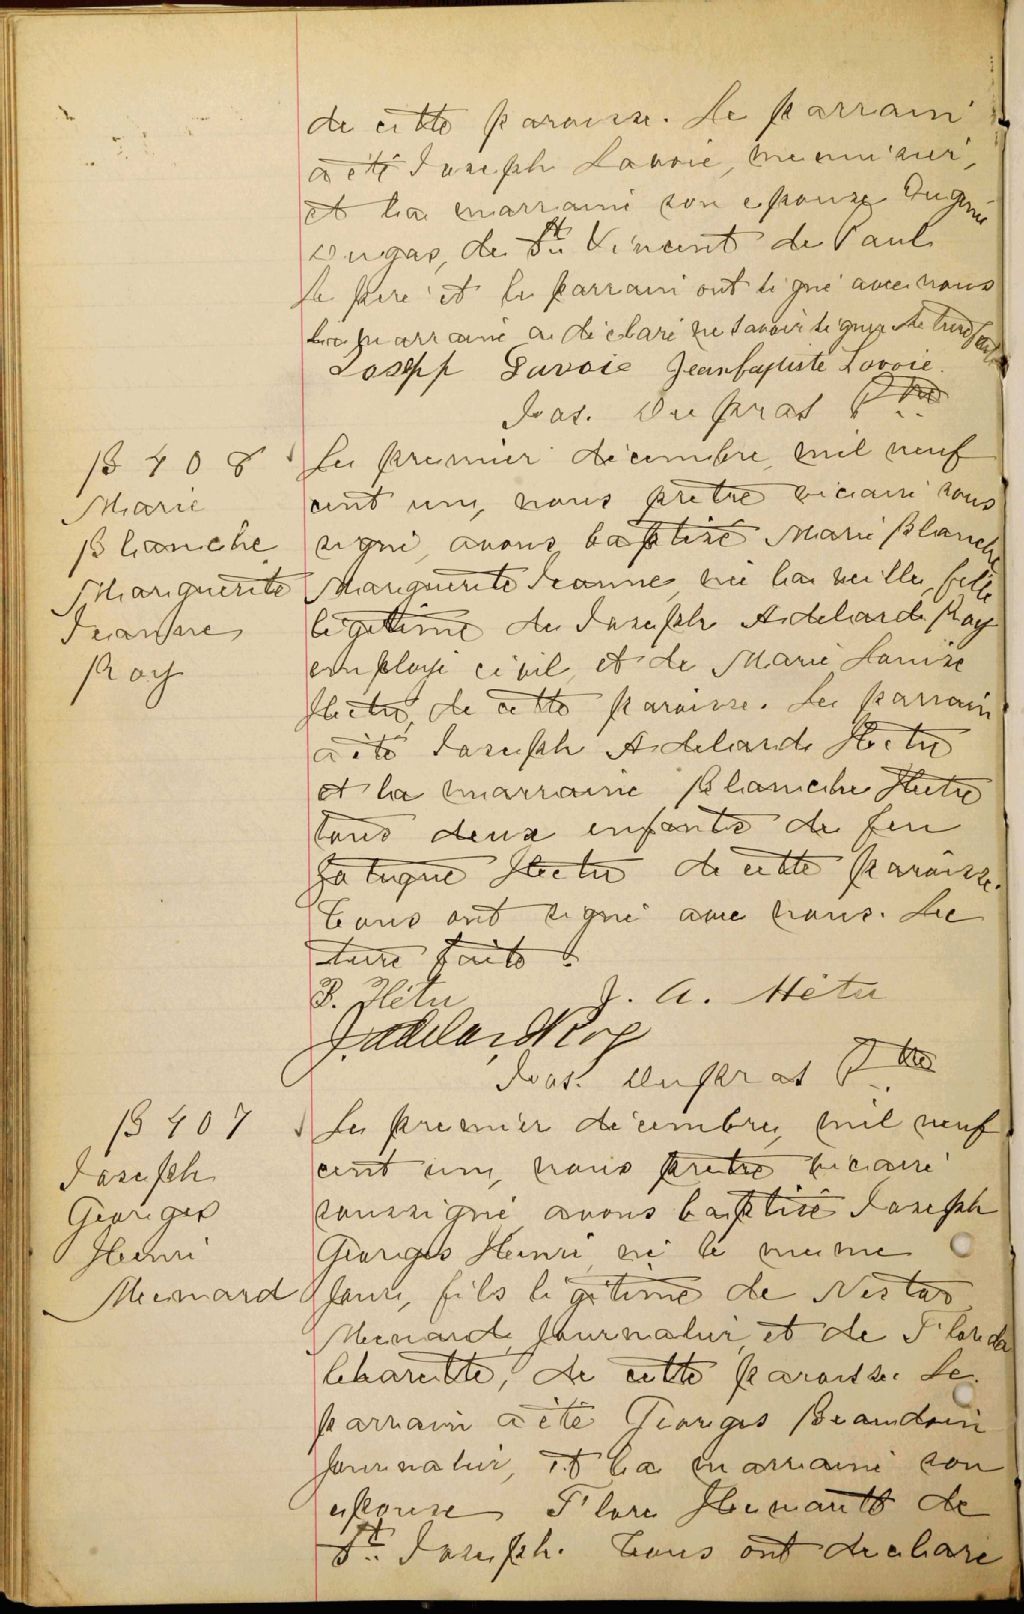 de cette paroisse. Le parrain
a été Joseph Lavoie, menuisier,
et la marraine son epouse Eugénie
Dugas, de St Vincent de Paul.
Le père et le parrain ont signé avec nous
La marraine a déclaré ne savoir signer. Lecture faite
Joseph Lavoie Jean baptiste Lavoie.
Jos. Dupras Ptre
B 408
Marie
Blanche
Marguerite
Jeanne
Roy
Le premier décembre, mil neuf
cent un, nous prêtre vicaire sous
signé, avons baptisé Marie Blanche
Marguerite Jeanne, née la veille, fille
légitime de Joseph Adelard Roy
employé civil, et de Marie Louise
Hetu, de cette paroisse. Le parrain
a été Joseph Adelard Hetu
et la marraine Blanche Hetu
tous deux enfants de feu
Hetu de cette paroisse.
Tous ont signé avec nous. Lec
ture faite.
B. Hétu J. A. Hétu
J. Adelard Roy
Jos. Dupras Ptre
B 407
Joseph
Georges
Henri
Menard
Le premier décembre, mil neuf
cent un, nous prêtre vicaire
soussigné, avons baptisé Joseph
Georges Henri, né le meme
jour, fils légitime de Nestor
Menard, journalier, et de Florida
Charette, de cette paroisse. Le
parrain a été Georges Beaudoin
journalier, et la marraine son
epouse Flore Henault de
St Joseph. Tous ont déclaré